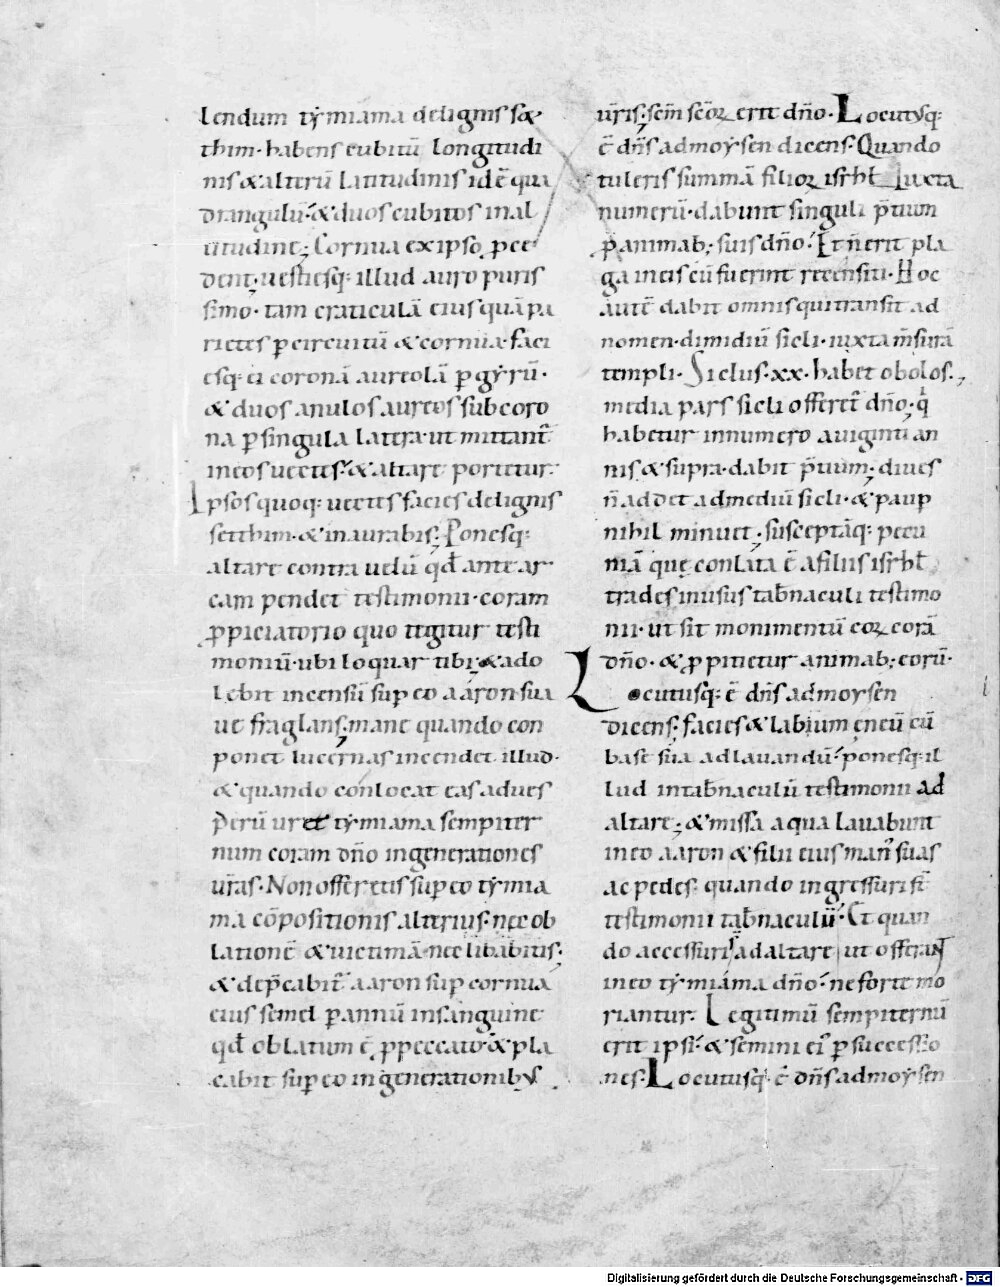 lendum tymiama delignis sæ
thim· habens cubitū longitudi
nis & alterū latitudinis idē qua
drangulū· & duos cubitos in al
titudine; Cornua ex ipso p̱ce
dent, uestiesq: illud auro puris
simo· tam craticulā eius quā pa
rietes p̱ circuitū & cornua· faci
esq: ei coronā aureolā p̱ gyrū·
& duos anulos aureos sub coro
na p̱ singula latera· ut mittant̄
in eos uectes· & altare portetur·
Ipsos quoq: uectes facies delignis
setthim· & inaurabis; Ponesq:
altare contra uelū qd̄ ante ar
cam pendet testimonii· coram
p̱piciatorio quo tegitur testi
moniū· ubi loquar tibi· & ado
lebit incensū sup̱ eo aaron sua
ue fraglans; mane quando con
ponet lucernas incendet illud·
& quando conlocat eas ad ues
p̱erū uret tymiama sempiter
num coram dn̄o in generationes
ur̄as· Non offeretis sup̱ eo tymia
ma cōpositionis alterius· nec ob
lationē & uictimā· nec libabitis;
& dep̄cabit̄ aaron sup̱ cornua
eius semel p̱ annū in sanguine
qd̄ oblatum ē p̱ peccato· & pla
cabit sup̱ eo in generationibus
ur̄is; scm̄ scōꝝ erit dn̄o· Locutusq:
ē dn̄s ad moysen dicens· Quando
tuleris summā filioꝝ isrhl̄ Iuxta
numerū· dabunt singuli p̄tium
p̱ animab; suis dn̄o· Et n̄ erit pla
ga in eis cū fuerint recensiti· Hoc
autē dabit omnis qui transit ad
nomen· dimidiū sicli· iuxta m̄surā
templi· Siclus· xx· habet obolos·,
media pars sicli offeret̄ dn̄o; q̄
habetur in numero a uiginti an
nis & supra· dabit p̄tium; diues
n̄ addet ad mediū sicli· & paup̱
nihil minuet; susceptāq: pecu
niā quę conlata ē a filiis isrhl̄
trades in usus tab̄naculi testimo
nii· ut sit monimentū eoꝝ corā
dn̄o· & p̱pitietur animab; eorū·
Locutusq: ē dn̄s ad moysen
dicens; facies & labium ęneū cū
base sua ad lauandū· ponesq: il
lud in tab̄naculū testimonii ad
altare; & missa aqua lauabunt
in eo aaron & filii eius man' suas
ac pedes· quando ingressuri st̄
testimonii tab̄naculū· Et quan
do accessuri s̄t ad altare ut offerant
in eo tymiama dn̄o· ne forte mo
riantur· Legitimū sempiternū
erit ipsi· & semini ei' p̱ successio
nes· Locutusq: ē dn̄s ad moysen
Digitalisierung gefördert durch die Deutsche Forschungsgemeinschaft - DFG